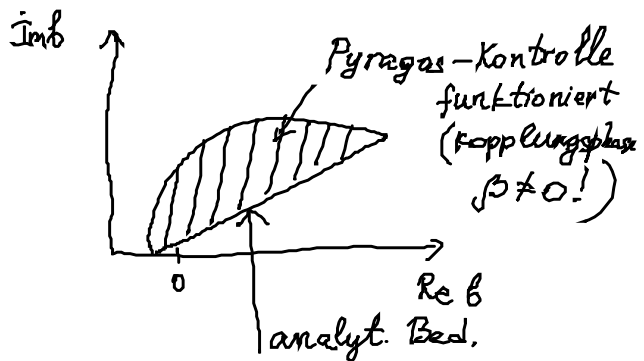 Im b
Pyragas-Kontrolle
funktioniert
(Kopplungsphase
β ≠ 0!)
0
Re b
analyt. Bed.